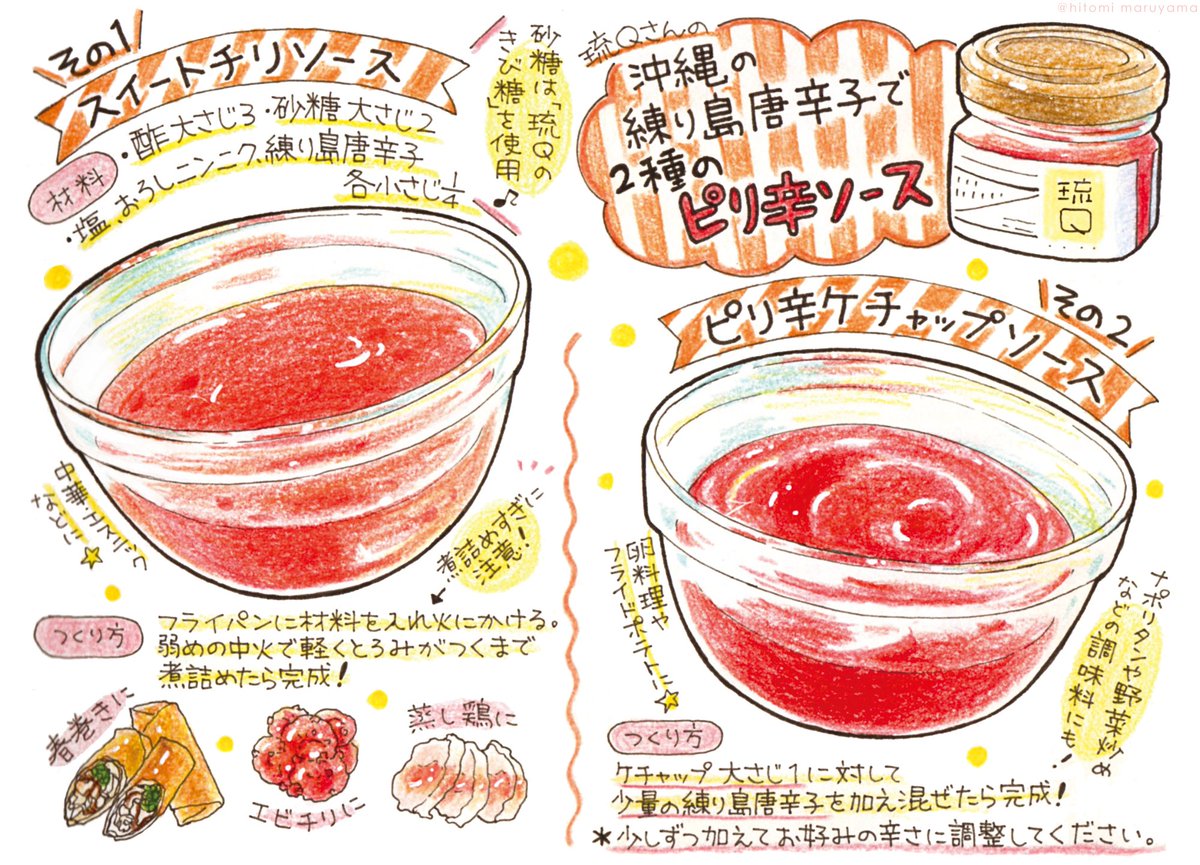 @hitomi maruyama
琉Qさんの
沖縄の
練り島唐辛子で
2種の
ピリ辛ソース
琉
Q
その1
スイートチリソース
砂糖は「琉Qの
きび糖」を使用♪
材料
・酢 大さじ3・砂糖 大さじ2
・塩、おろしニンニク、練り島唐辛子
各小さじ1/4
中華・エスニック
などに☆
煮詰めすぎに
注意!
つくり方
フライパンに材料を入れ火にかける。
弱めの中火で軽くとろみがつくまで
煮詰めたら完成!
春巻きに
エビチリに
蒸し鶏に
その2
ピリ辛ケチャップソース
卵料理や
フライドポテトに☆
ナポリタンや野菜炒め
などの調味料にも!
つくり方
ケチャップ 大さじ1に対して
少量の練り島唐辛子を加え混ぜたら完成!
*少しずつ加えてお好みの辛さに調整してください。